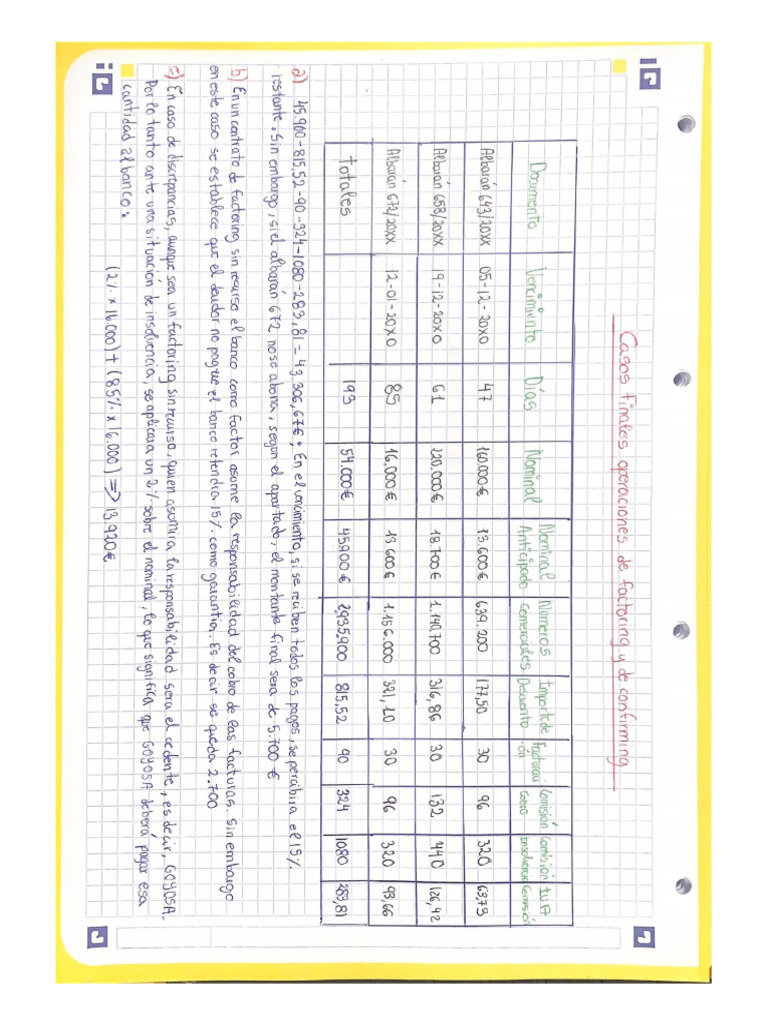 Casos Finales operaciones de factoring y de confirming
Documento Vencimiento Días Nominal Nominal Anticipado Números Comerciales Importe de Descuento Facturaci-ón Comisión Cobro Comisión Insolvencia IVA Comisión
Albarán 643/20XX 05-12-20X0 47 160.000€ 13.600€ 639.200 177,50 30 96 320 63,73
Albarán 658/20XX 19-12-20X0 61 220.000€ 18.700€ 1.140.700 316,86 30 132 440 126,42
Albarán 672/20XX 12-01-20X0 85 16.000€ 13.600€ 1.156.000 321,10 30 96 320 93,66
Totales 193 54.000€ 45900€ 2,935,900 815,52 90 324 1080 283,81
a) 45.900-815,52-90-324-1080-283,81= 43.306,67€. En el vencimiento, si se reciben todos los pagos, se percibira el 15%
restante. Sin embargo, si el albarán 672 no se abona, segun el apartado, el montante final sera de 5.700€
b) En un contrato de factoring sin recurso el banco como factor asume la responsabilidad del cobro de las facturas. Sin embargo
en este caso se establece que el deudor no pague el banco retendria 15% como garantia. Es decir se queda 2.700
c) En caso de discrepancias, aunque sea un factoring sin recurso, quien asumira la responsabilidad sera el cedente, es decir, GOYOSA.
Por lo tanto ante una situación de insolvencia, se aplicara un 2% sobre el nominal, lo que significa que GOYOSA deberá pagar esa
cantidad al banco:
(2% x 16.000) + (85% x 16.000) => 13.920€